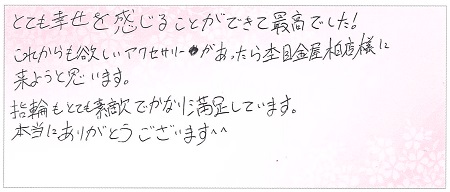 とても幸せを感じることができて最高でした!
これからも欲しいアクセサリーがあったら杢目金屋柏店様に
来ようと思います。
指輪もとても素敵でかなり満足しています。
本当にありがとうございます^^